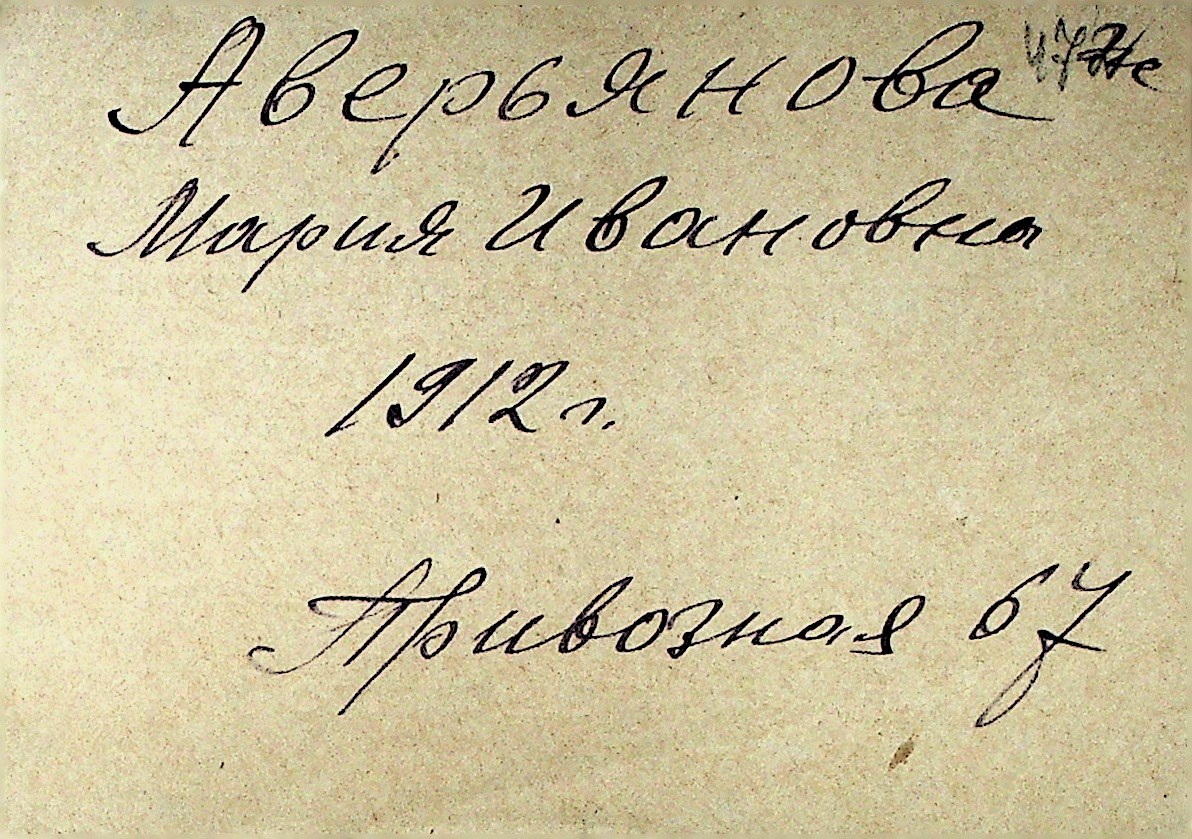 Аверьянова
Мария Ивановна
1912 г.
Привозная 67